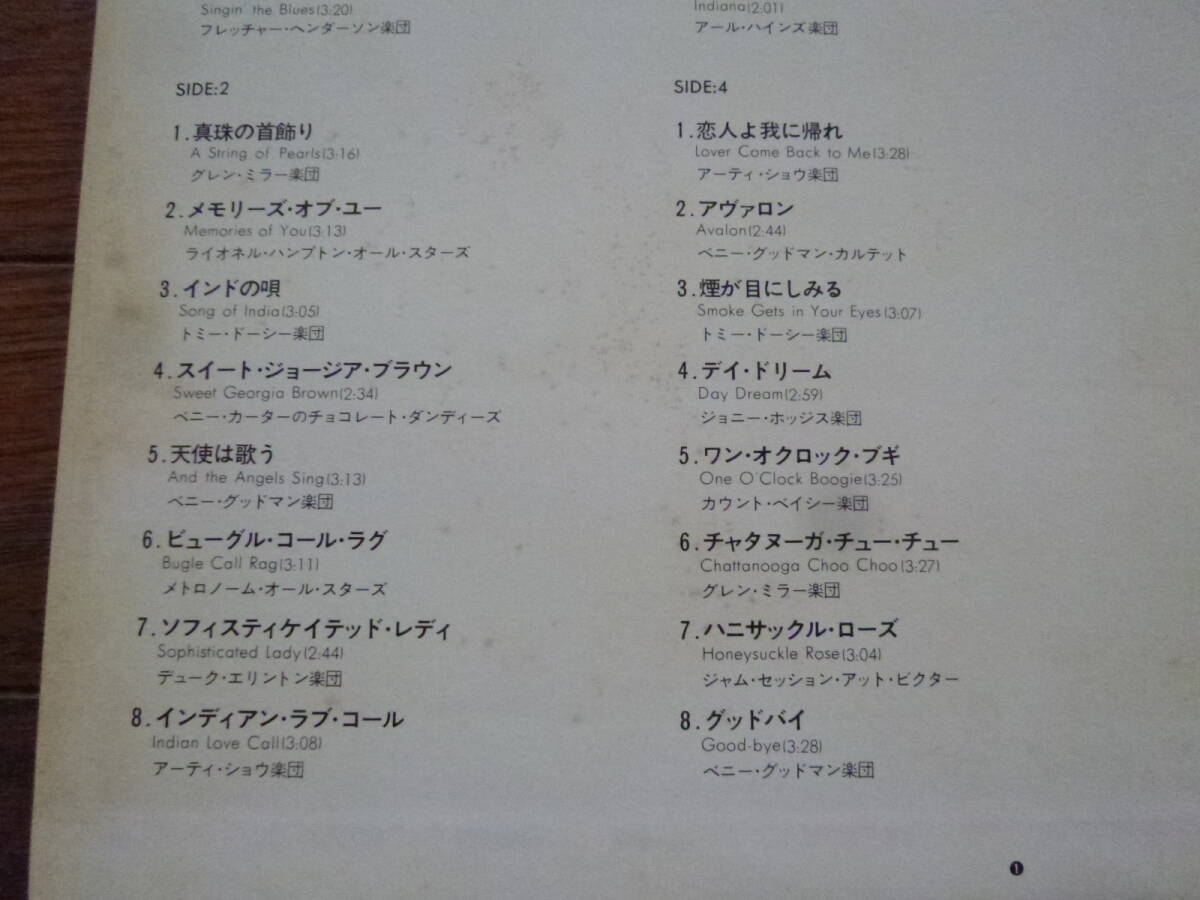 Singin' the Blues(3:20)
フレッチャー・ヘンダーソン楽団
SIDE:2
1.真珠の首飾り
A String of Pearls(3:16)
グレン・ミラー楽団
2.メモリーズ・オブ・ユー
Memories of You(3:13)
ライオネル・ハンプトン・オール・スターズ
3.インドの唄
Song of India(3:05)
トミー・ドーシー楽団
4.スイート・ジョージア・ブラウン
Sweet Georgia Brown(2:34)
ベニー・カーターのチョコレート・ダンディーズ
5.天使は歌う
And the Angels Sing(3:13)
ベニー・グッドマン楽団
6.ビューグル・コール・ラグ
Bugle Call Rag(3:11)
メトロノーム・オール・スターズ
7.ソフィスティケイテッド・レディ
Sophisticated Lady(2:44)
デューク・エリントン楽団
8.インディアン・ラブ・コール
Indian Love Call(3:08)
アーティ・ショウ楽団
Indiana(2:01)
アール・ハインズ楽団
SIDE:4
1.恋人よ我に帰れ
Lover Come Back to Me(3:28)
アーティ・ショウ楽団
2.アヴァロン
Avalon(2:44)
ベニー・グッドマン・カルテット
3.煙が目にしみる
Smoke Gets in Your Eyes(3:07)
トミー・ドーシー楽団
4.デイ・ドリーム
Day Dream(2:59)
ジョニー・ホッジス楽団
5.ワン・オクロック・ブギ
One O'Clock Boogie(3:25)
カウント・ベイシー楽団
6.チャタヌーガ・チュー・チュー
Chattanooga Choo Choo(3:27)
グレン・ミラー楽団
7.ハニサックル・ローズ
Honeysuckle Rose(3:04)
ジャム・セッション・アット・ビクター
8.グッドバイ
Good-bye(3:28)
ベニー・グッドマン楽団
❶